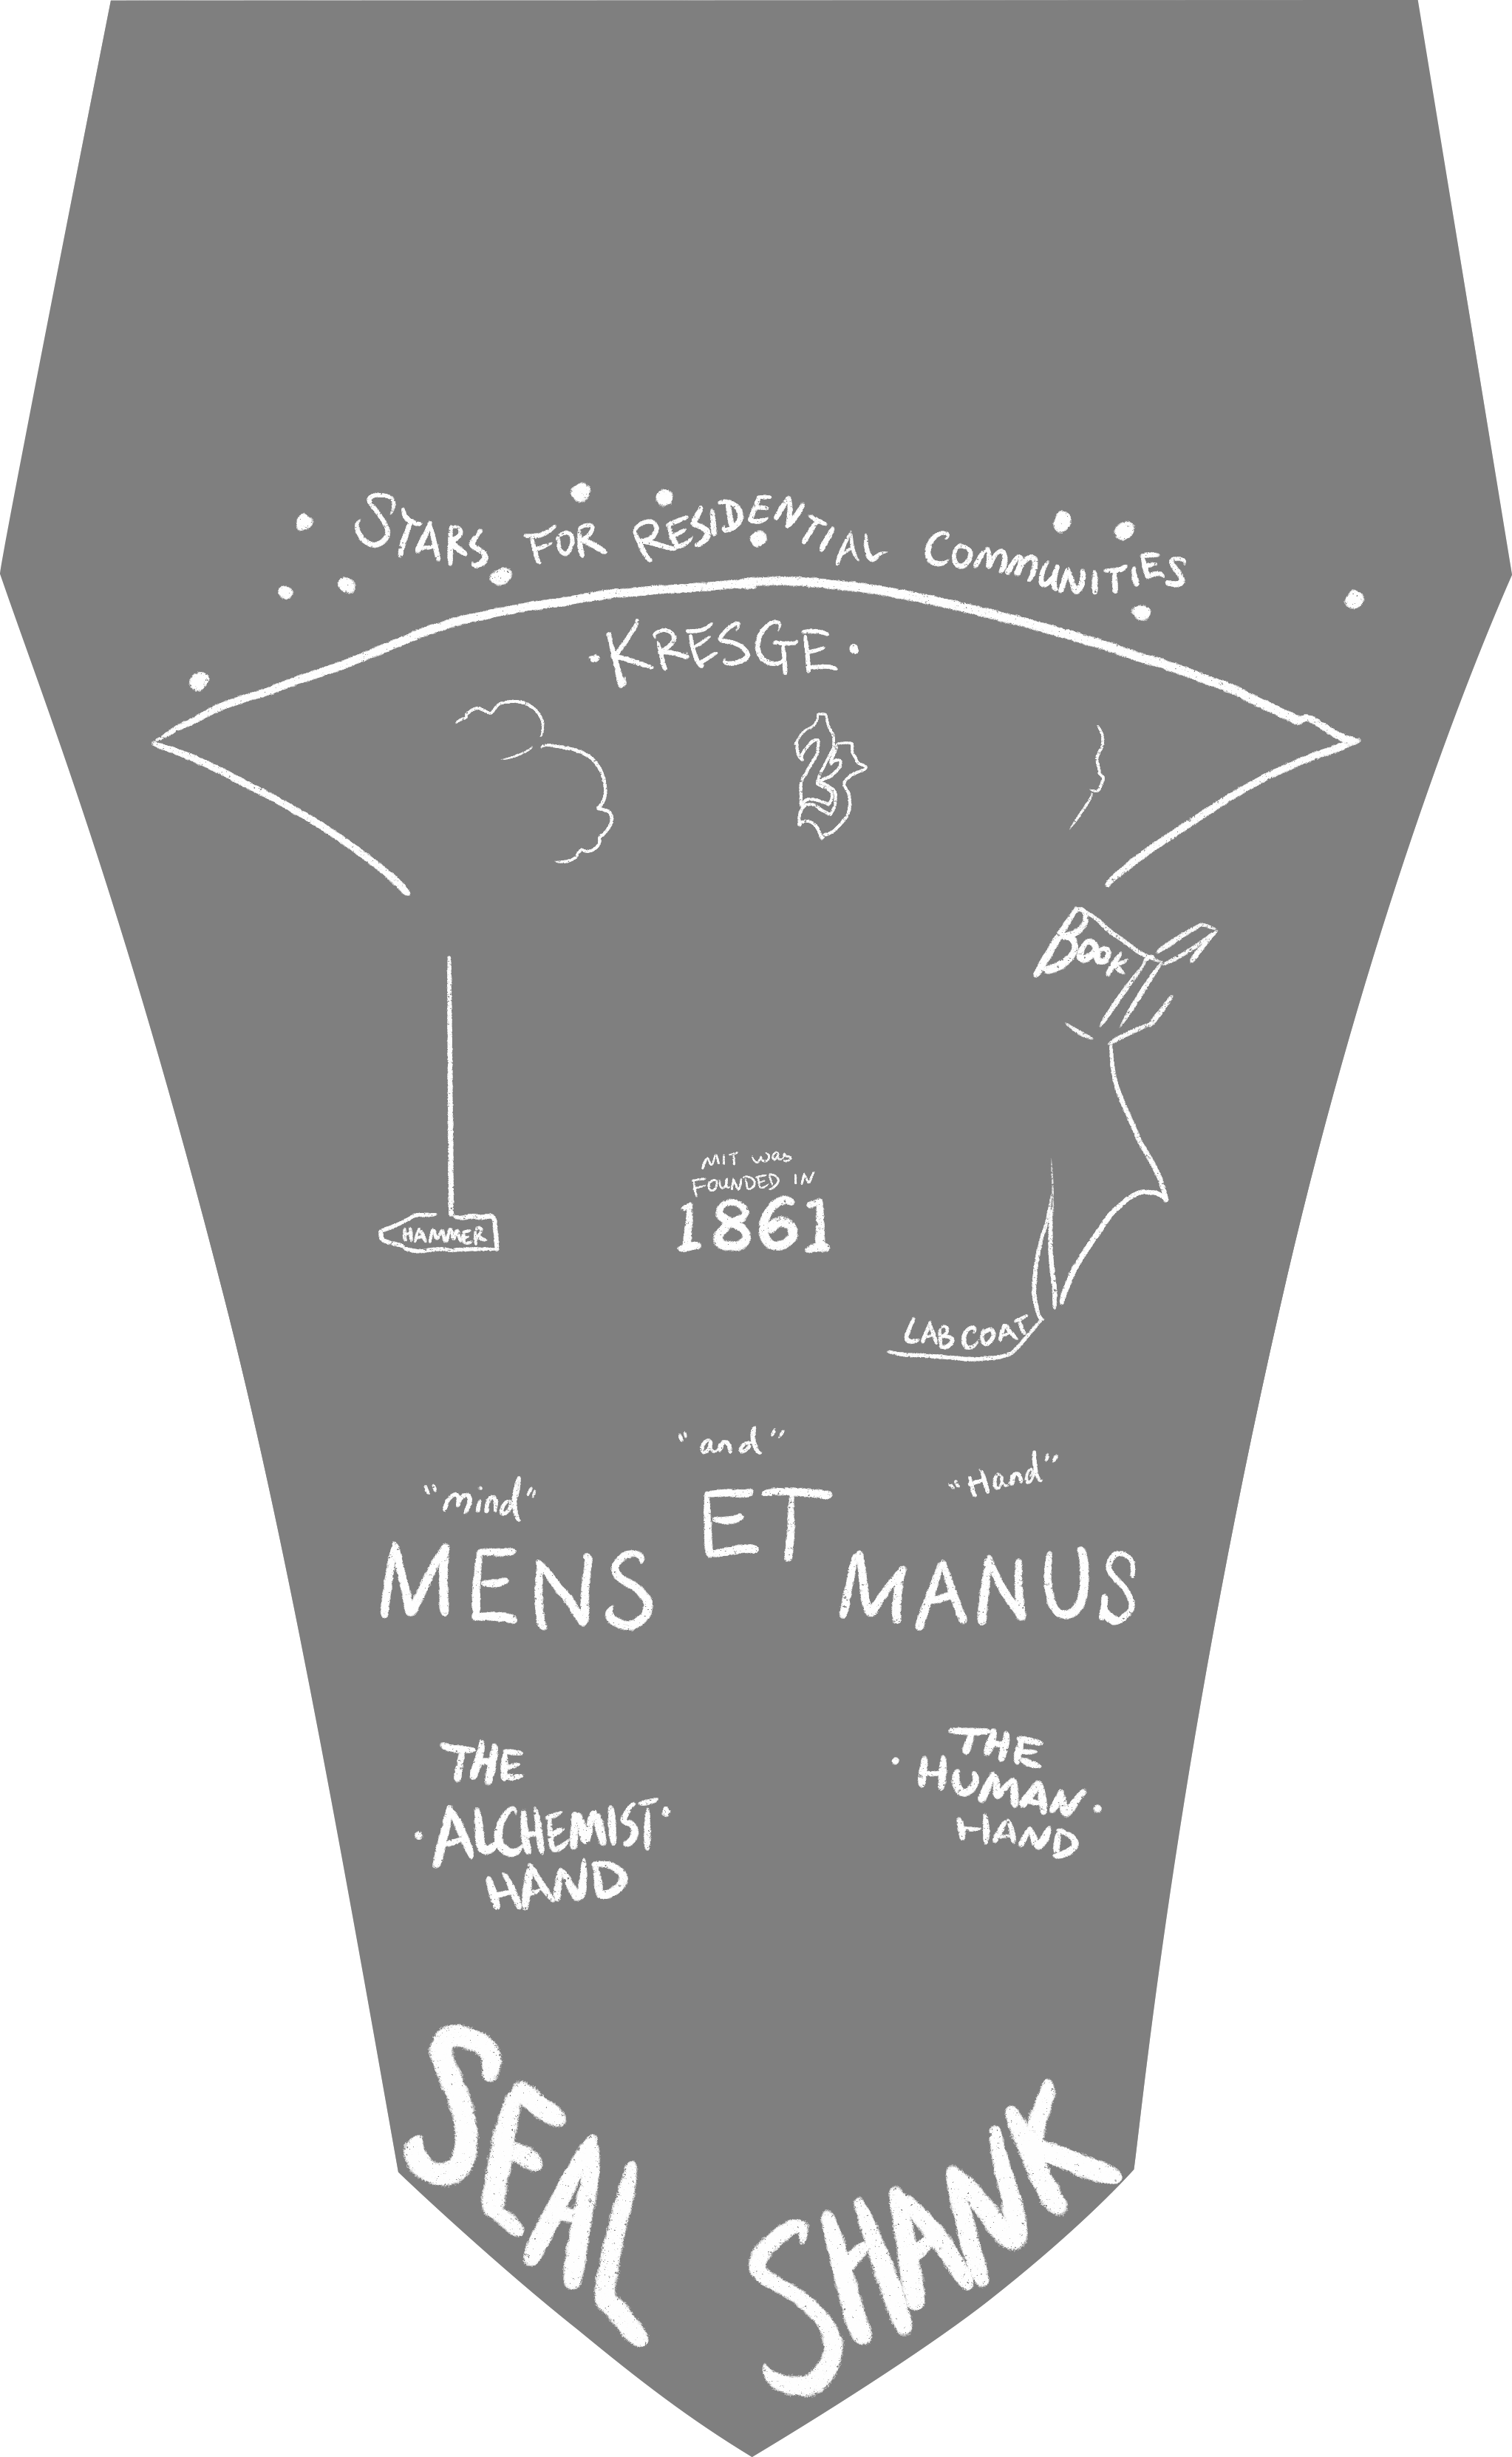 STARS FOR RESIDENTIAL COMMUNITIES
KRESGE
BOOK
MIT was
FOUNDED IN
1861
HAMMER
LAB COAT
"and"
"mind"
"Hand"
ET
MENS
MANUS
THE
ALCHEMIST
HAND
THE
HUMAN
HAND
SEAL
SHANK